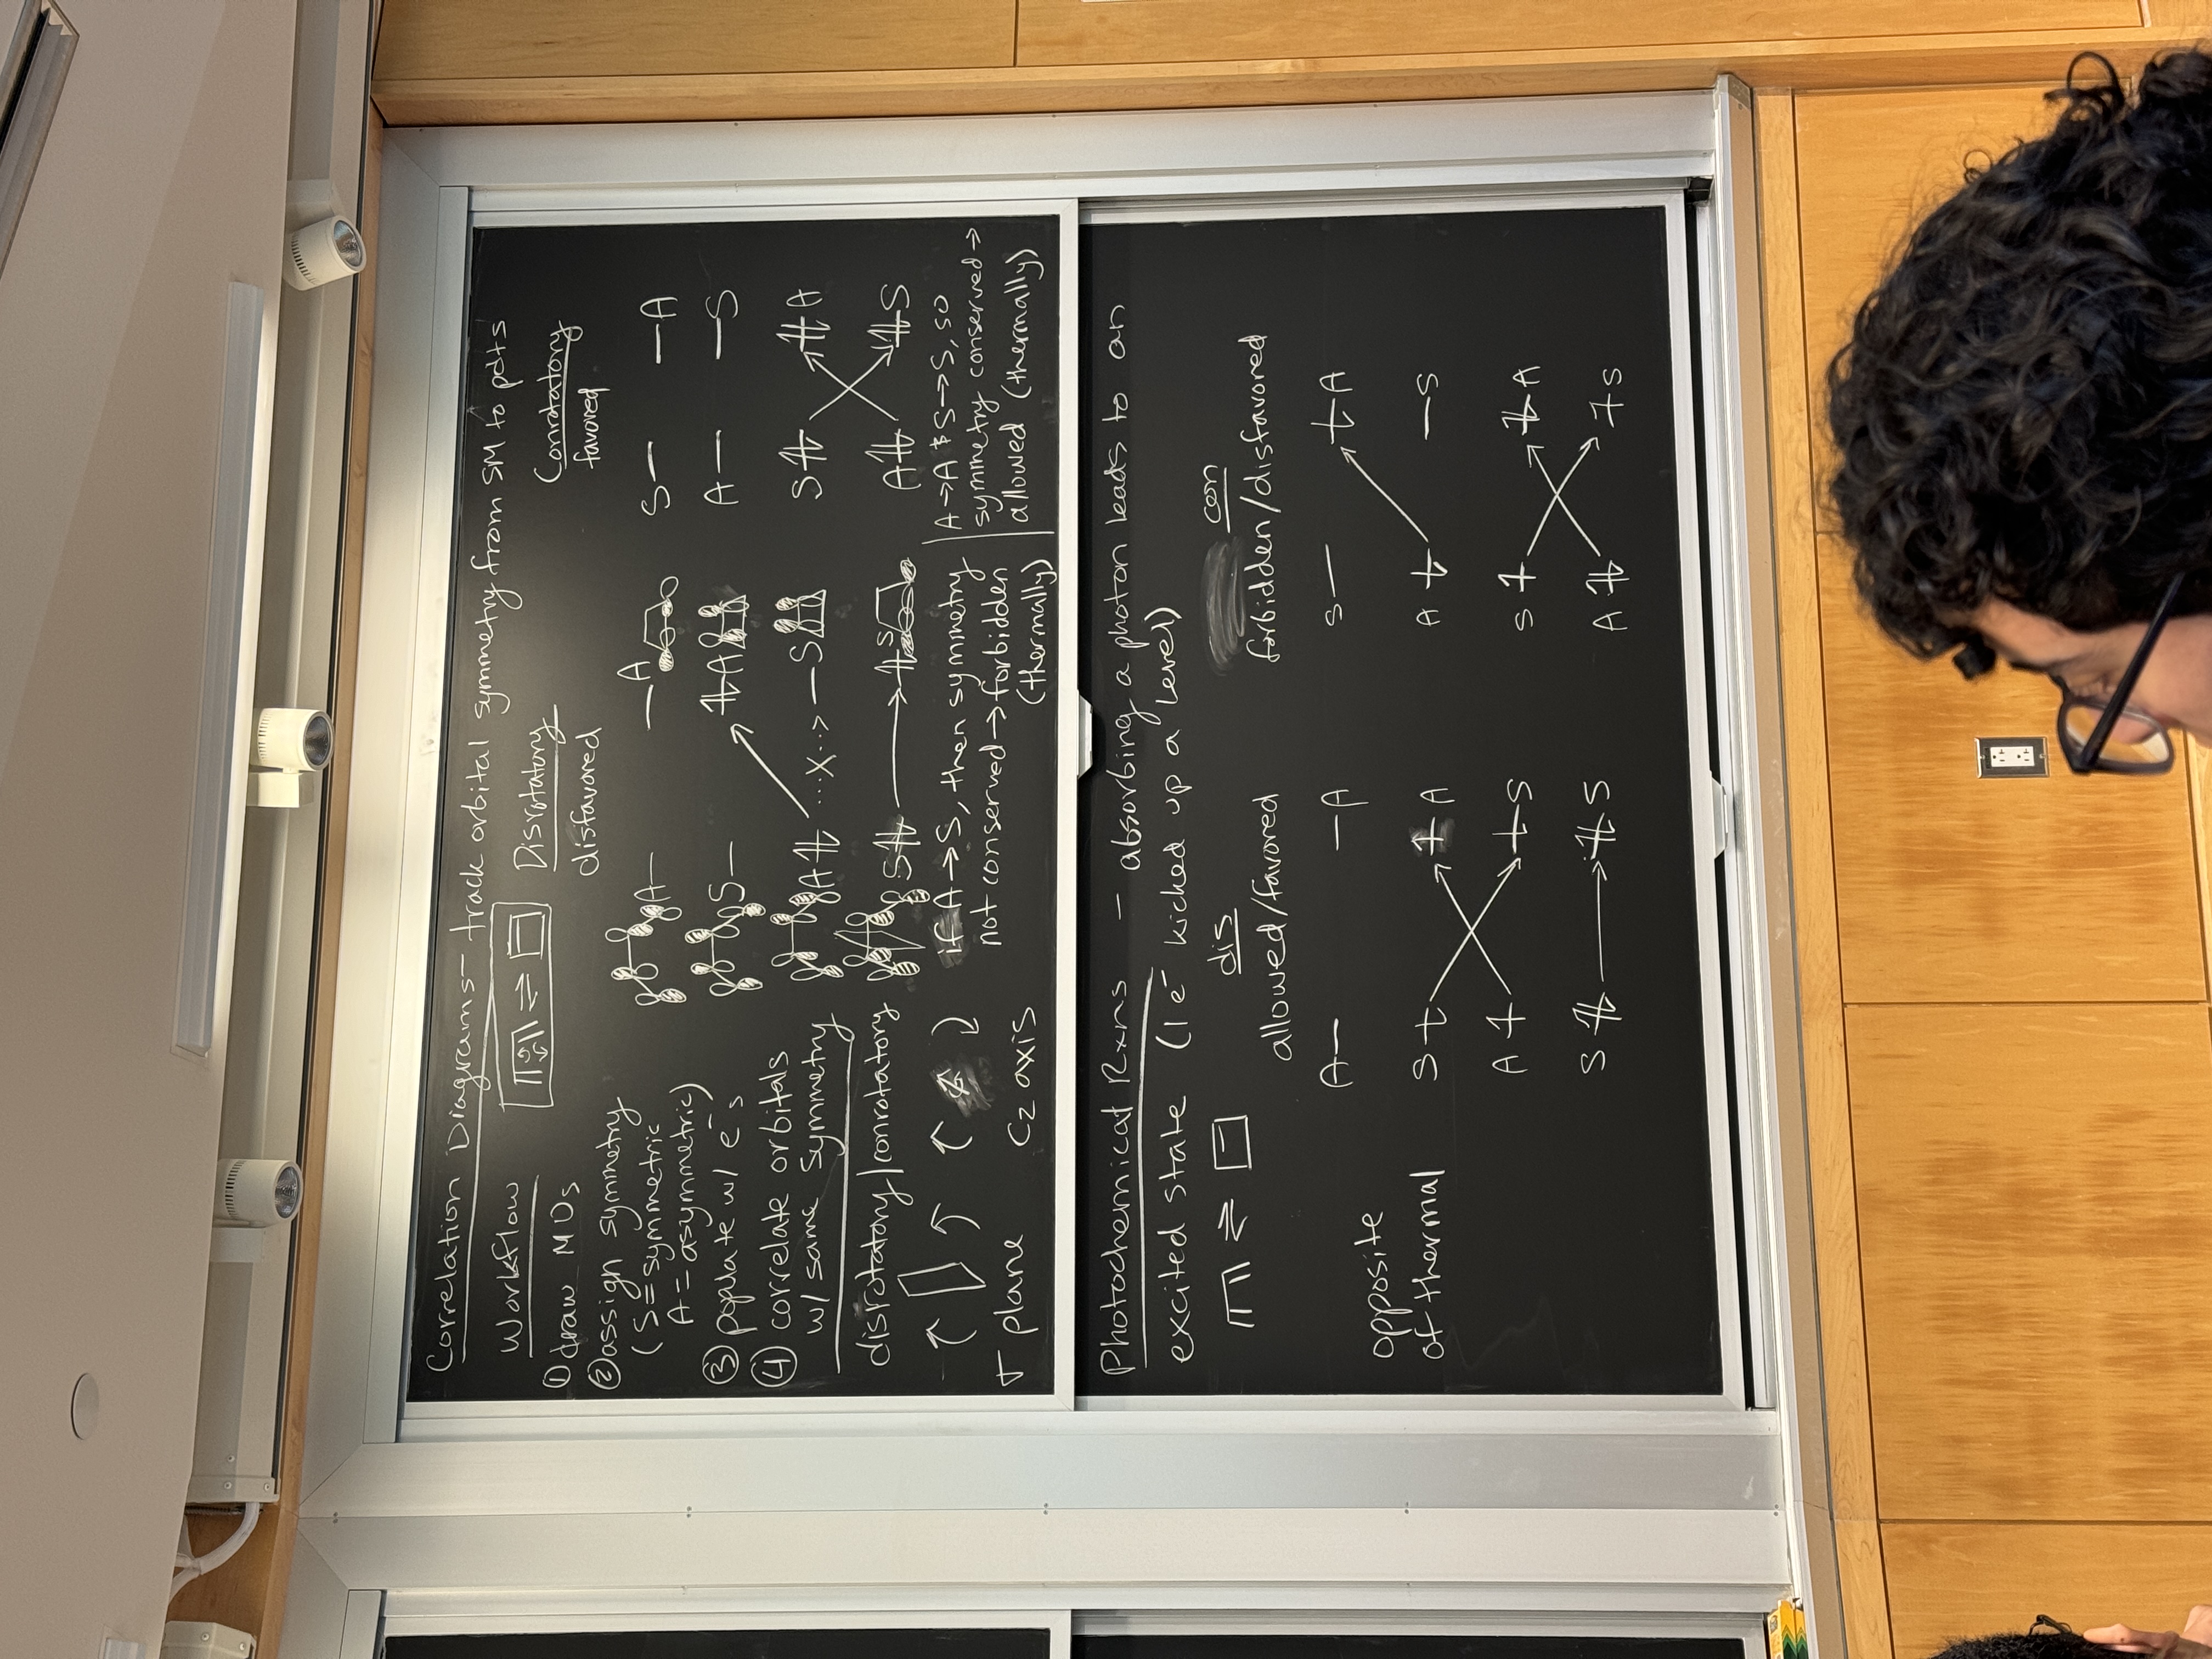 Correlation Diagrams - track orbital symmetry from SM to pdts
Workflow
① draw MOs
② assign symmetry
(S = symmetric
A = asymmetric)
③ populate w/ e⁻s
④ correlate orbitals
w/ same symmetry
disrotatory/conrotatory
σ plane
C₂ axis
⇌
Disrotatory
disfavored
A — — A
S — ⥮ A
A ⥮ ...X...> — S
S ⥮ → ⥮ S
if A → S, then symmetry
not conserved → forbidden
(thermally)
Conrotatory
favored
S — — A
A — — S
S ⥮ ⥮ A
A ⥮ ⥮ S
A → A & S → S, so
symmetry conserved →
allowed (thermally)
Photochemical Rxns - absorbing a photon leads to an
excited state (1 e⁻ kicked up a level)
⇌
opposite
of thermal
dis
allowed/favored
A — — A
S ⇂ ↿ A
A ↿ ⇂ S
S ⥮ → ⥮ S
con
forbidden/disfavored
S — ⇂ A
A ⇂ — S
S ↿ ⥮ A
A ⥮ ↿ S